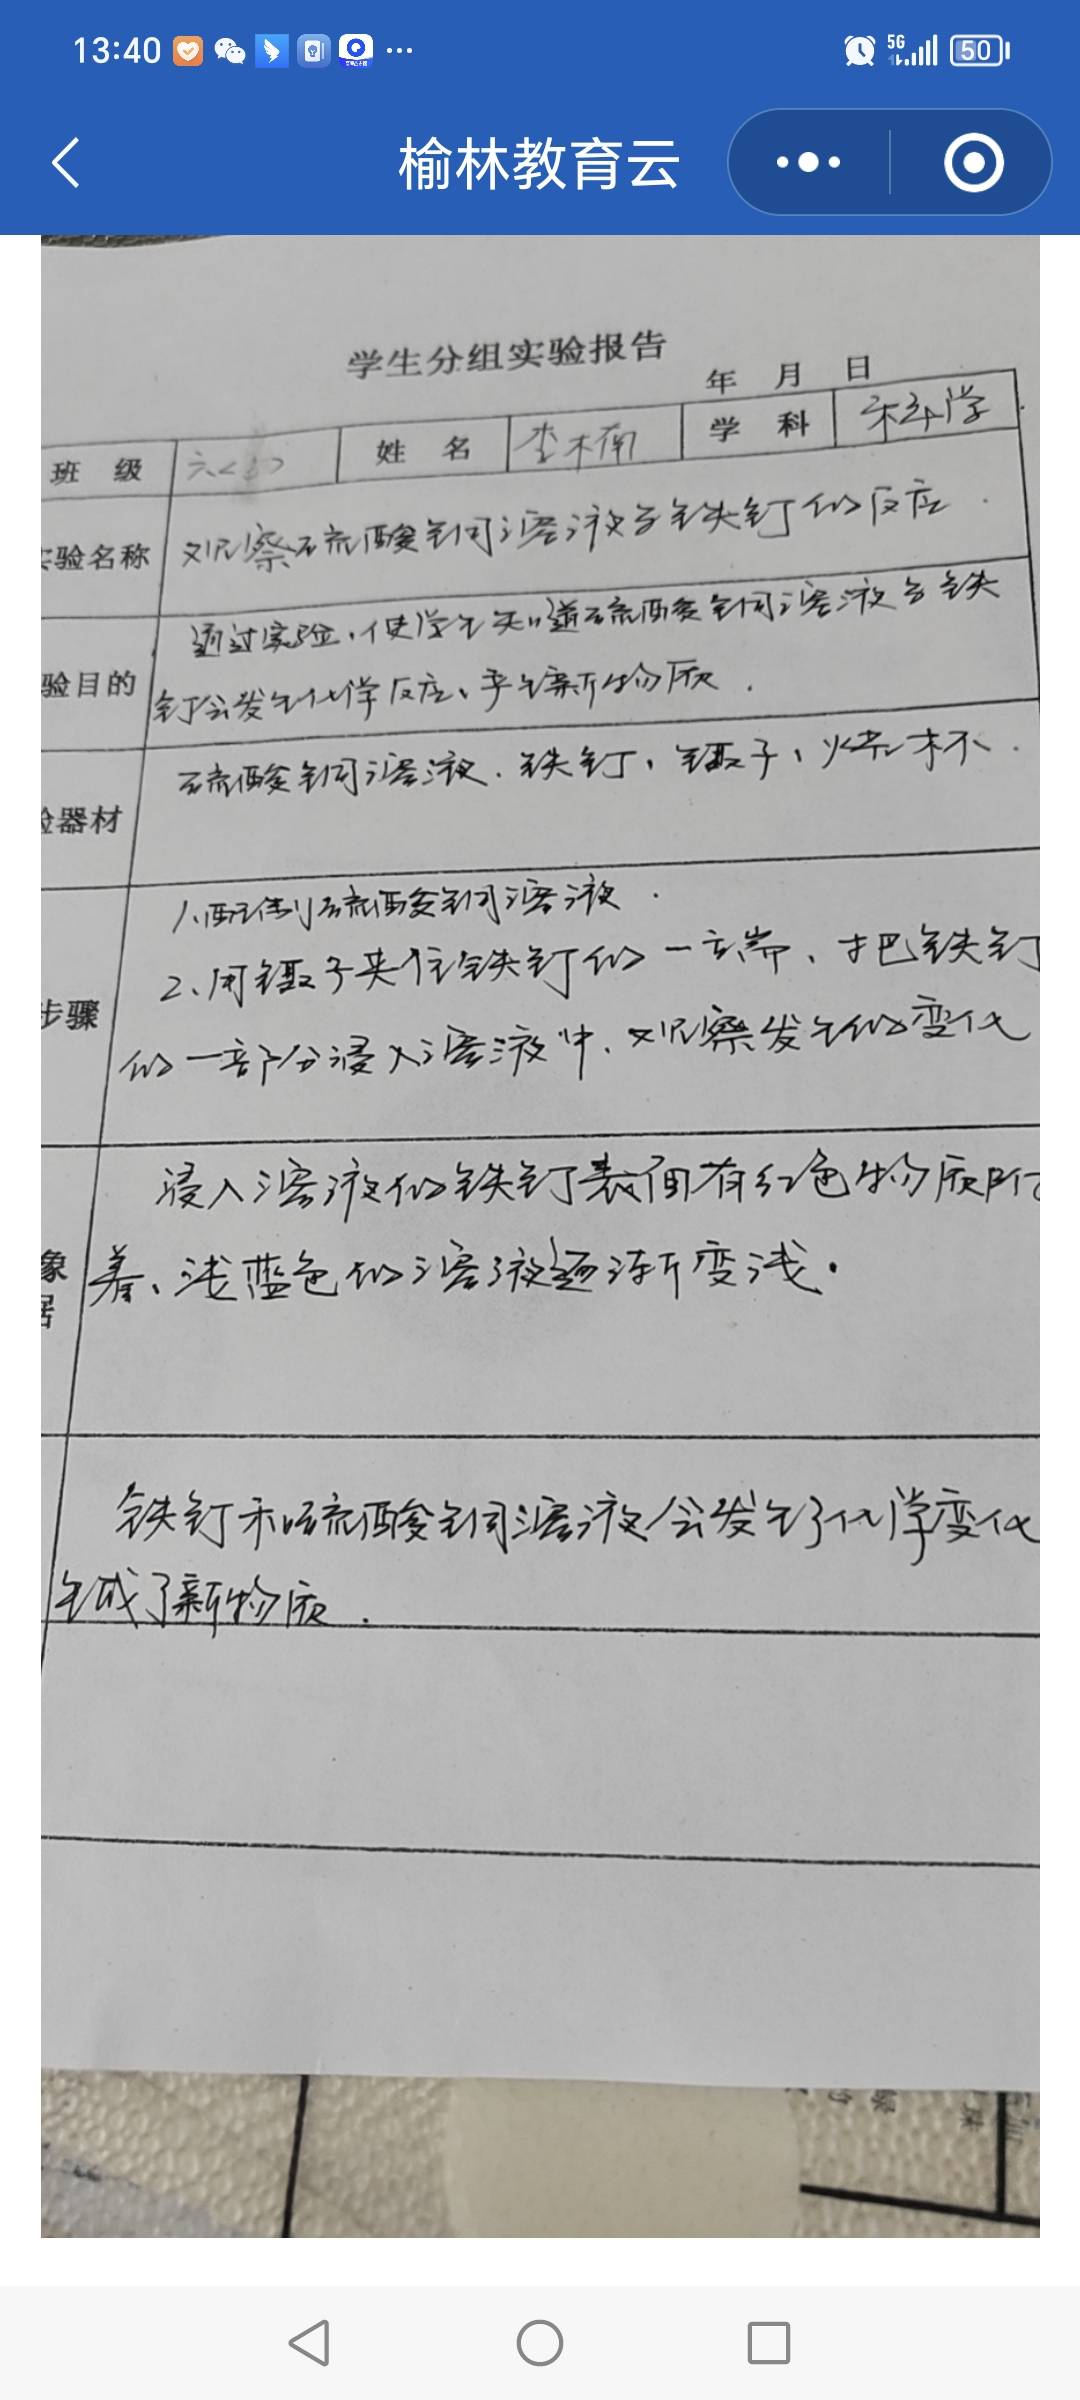 13:40
5G
50
榆林教育云
学生分组实验报告
年 月 日
班 级 六 姓 名 李木楠 学 科 科学
实验名称 观察硫酸铜溶液与铁钉的反应.
验目的 通过实验,使学生知道硫酸铜溶液与铁
钉会发生化学反应、产生新物质.
验器材 硫酸铜溶液、铁钉、镊子、烧杯.
步骤 1.配制硫酸铜溶液.
2.用镊子夹住铁钉的一端、把铁钉
的一部分浸入溶液中、观察发生的变化
浸入溶液的铁钉表面有红色物质附
象 着、浅蓝色的溶液逐渐变浅.
居
铁钉和硫酸铜溶液会发生了化学变化
生成了新物质.